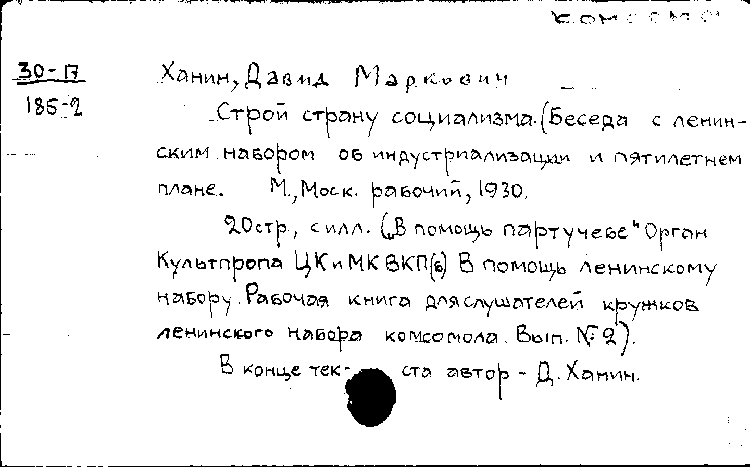 комсомол
30-17
185-2
Ханин, Давид Маркович
Строй страну социализма. (Беседа с ленин-
ским набором об индустриализации и пятилетнем
плане. М., Моск. рабочий, 1930.
20 стр., с илл. („В помощь партучебе" Орган
Культпропа ЦК и МК ВКП(б) В помощь ленинскому
набору. Рабочая книга для слушателей кружков
ленинского набора комсомола. Вып. № 2).
В конце тек- ста автор - Д. Ханин.